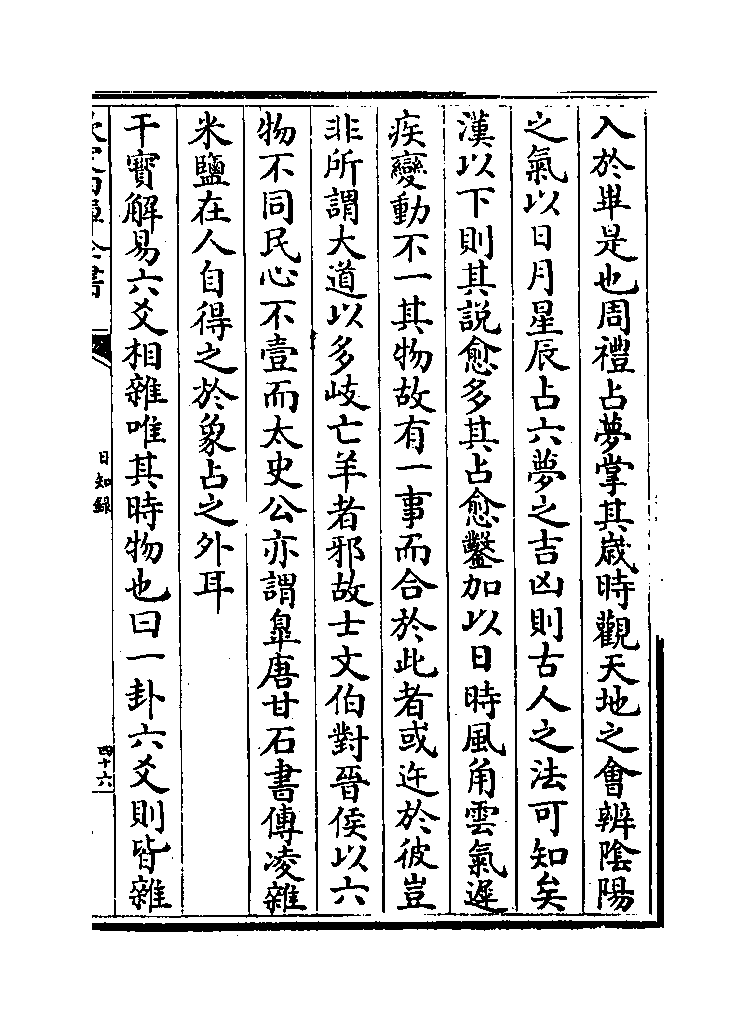 入於畢是也周禮占夢掌其歳時觀天地之會辨隂陽
之氣以日月星辰占六夢之吉凶則古人之法可知矣
漢以下則其説愈多其占愈鑿加以日時風角雲氣遲
疾變動不一其物故有一事而合於此者或迕於彼豈
非所謂大道以多岐亡羊者邪故士文伯對晉侯以六
物不同民心不壹而太史公亦謂臯唐甘石書傳凌雜
米鹽在人自得之於象占之外耳
干寳解易六爻相雜唯其時物也曰一卦六爻則皆雜
日知録
四十六